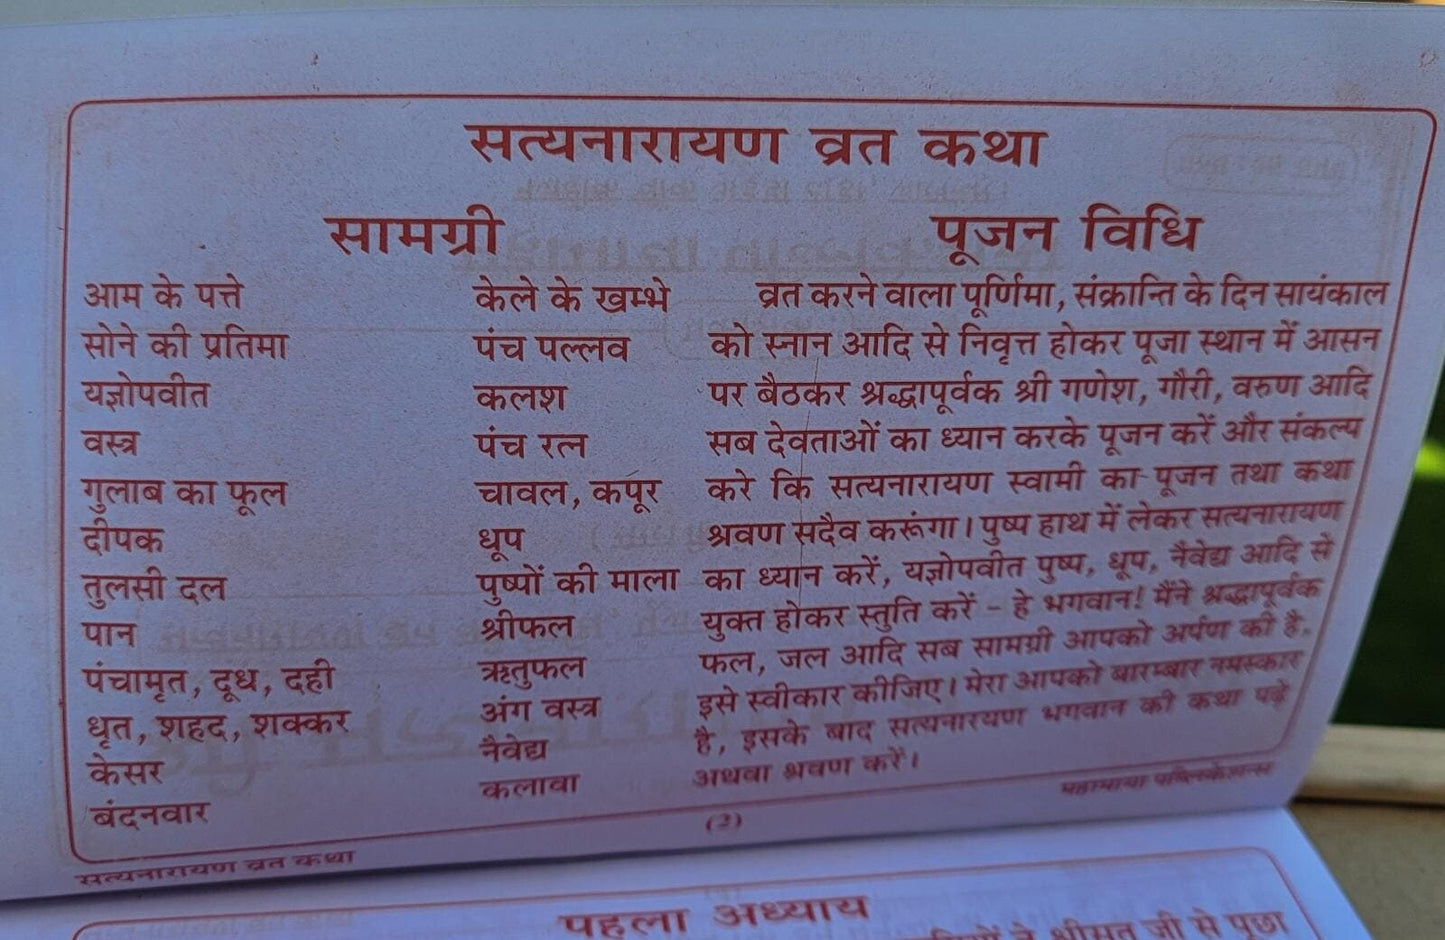 सत्यनारायण व्रत कथा
सामग्री
आम के पत्ते
सोने की प्रतिमा
यज्ञोपवीत
वस्त्र
गुलाब का फूल
दीपक
तुलसी दल
पान
पंचामृत, दूध, दही
धृत, शहद, शक्कर
केसर
बंदनवार
केले के खम्भे
पंच पल्लव
कलश
पंच रत्न
चावल, कपूर
धूप
पुष्पों की माला
श्रीफल
ऋतुफल
अंग वस्त्र
नैवेद्य
कलावा
पूजन विधि
व्रत करने वाला पूर्णिमा, संक्रान्ति के दिन सायंकाल
को स्नान आदि से निवृत्त होकर पूजा स्थान में आसन
पर बैठकर श्रद्धापूर्वक श्री गणेश, गौरी, वरुण आदि
सब देवताओं का ध्यान करके पूजन करें और संकल्प
करे कि सत्यनारायण स्वामी का पूजन तथा कथा
श्रवण सदैव करूंगा। पुष्प हाथ में लेकर सत्यनारायण
का ध्यान करें, यज्ञोपवीत पुष्प, धूप, नैवेद्य आदि से
युक्त होकर स्तुति करें - हे भगवान! मैंने श्रद्धापूर्वक
फल, जल आदि सब सामग्री आपको अर्पण की है,
इसे स्वीकार कीजिए। मेरा आपको बारम्बार नमस्कार
है, इसके बाद सत्यनारयण भगवान की कथा पढ़ें
अथवा श्रवण करें।
महामाया पब्लिकेशन्स
(2)
सत्यनारायण व्रत कथा
पहला अध्याय
ने श्रीसूत जी से पूछा